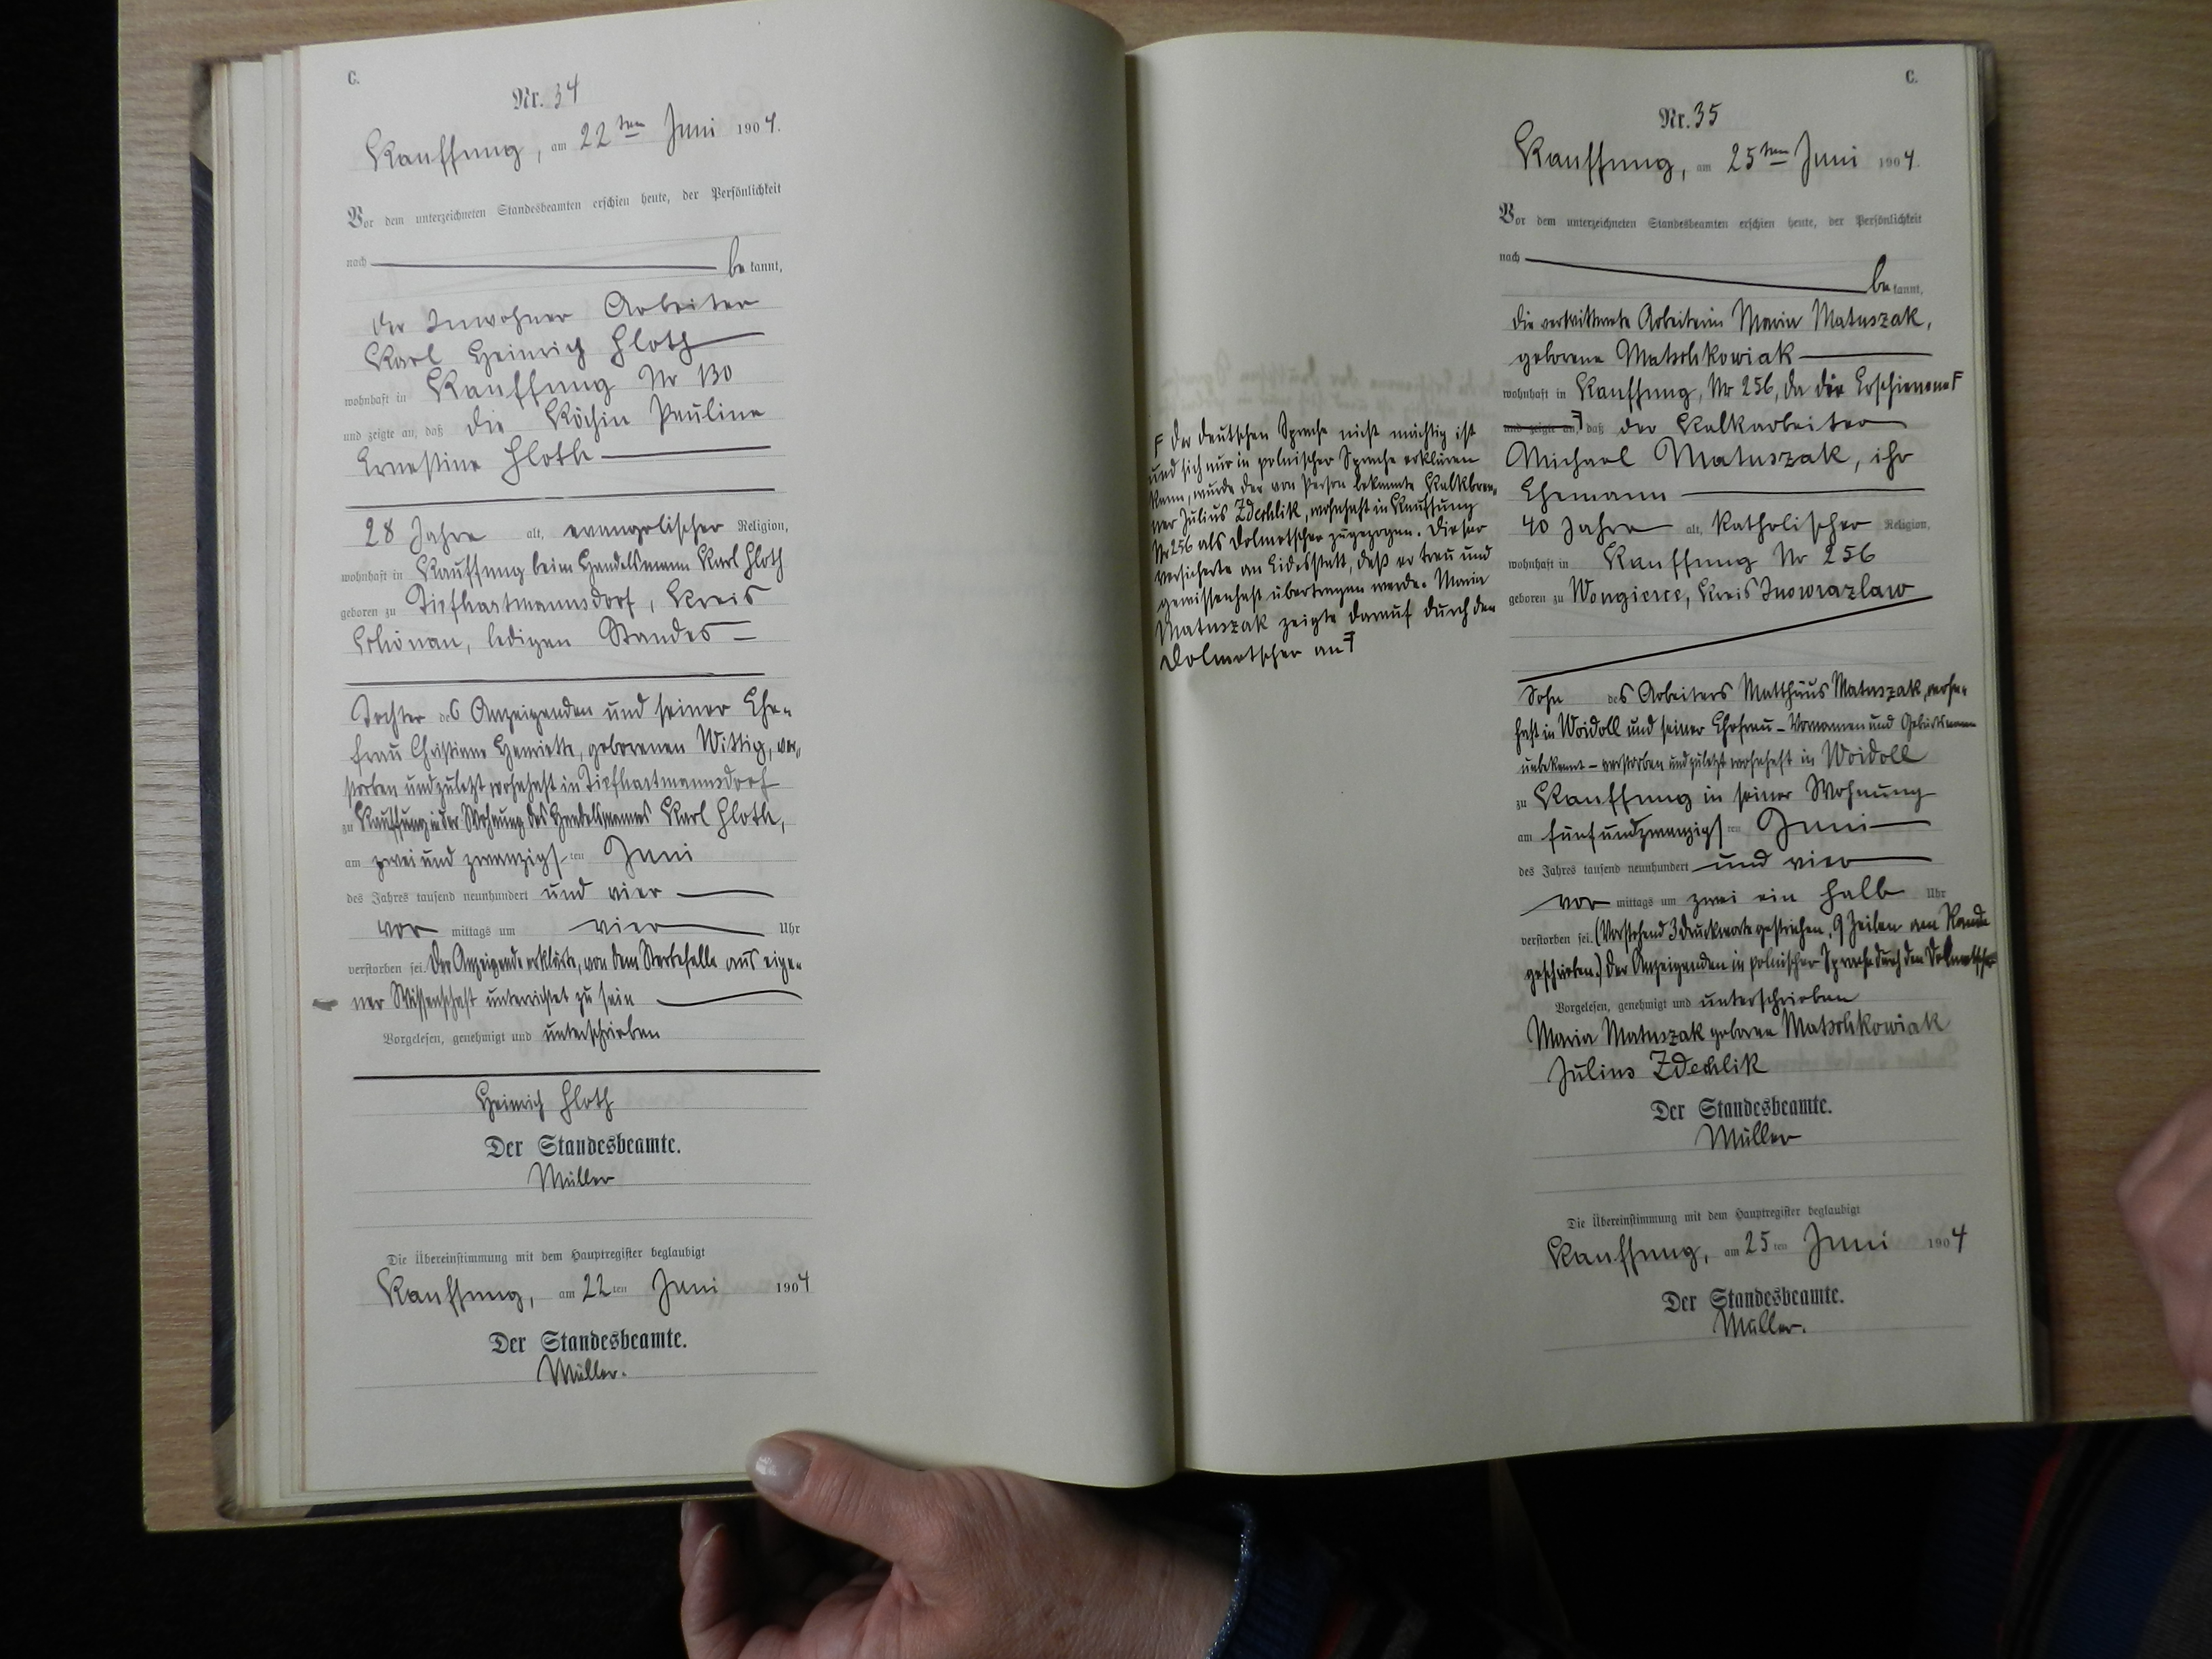 C.
Nr. 34
Kauffung, am 22ten Juni 1904.
Vor dem unterzeichneten Standesbeamten erschien heute, der Persönlichkeit
nach be kannt,
der Inwohner Arbeiter
Karl Heinrich Floth
wohnhaft in Kauffung Nr 130
und zeigte an, daß die Köchin Pauline
Ernestine Floth
28 Jahre alt, evangelischer Religion,
wohnhaft in Kauffung beim Handelsmann Karl Floth
geboren zu Tiefhartmannsdorf, Kreis
Schönau, ledigen Standes
Tochter des Anzeigenden und seiner Ehe-
frau Christiane Henriette, geborenen Wittig, ver-
storben und zuletzt wohnhaft in Tiefhartmannsdorf
zu Kauffung in der Wohnung des Handelsmannes Karl Floth,
am zwei und zwanzigsten Juni
des Jahres tausend neunhundert und vier
vor mittags um vier Uhr
verstorben sei. Der Anzeigende erklärte, von dem Sterbefalle aus eige-
ner Wissenschaft unterrichtet zu sein
Vorgelesen, genehmigt und unterschrieben
Heinrich Floth
Der Standesbeamte.
Müller
Die Übereinstimmung mit dem Hauptregister beglaubigt
Kauffung, am 22ten Juni 1904
Der Standesbeamte.
Müller.
C.
Nr. 35
Kauffung, am 25ten Juni 1904.
Vor dem unterzeichneten Standesbeamten erschien heute, der Persönlichkeit
nach be kannt,
die verwittwete Arbeiterin Maria Matuszak,
geborene Matschkowiak
wohnhaft in Kauffung, Nr 256, da die Erschienene F
und zeigte an, F daß der Kalkarbeiter
Michael Matuszak, ihr
Ehemann
40 Jahre alt, katholischer Religion,
wohnhaft in Kauffung Nr 256
geboren zu Wongierce, Kreis Inowrazlaw
Sohn des Arbeiters Matthäus Matuszak, wohn-
haft in Woidoll und seiner Ehefrau – Vornamen und Geburtsname
unbekannt – verstorben und zuletzt wohnhaft in Woidoll
zu Kauffung in seiner Wohnung
am fünf und zwanzigsten Juni
des Jahres tausend neunhundert und vier
vor mittags um zwei ein halb Uhr
verstorben sei. (Vorstehend 3 Druckworte gestrichen, 9 Zeilen am Rande
geschrieben.) Der Anzeigenden in polnischer Sprache durch den Dolmetscher
Vorgelesen, genehmigt und unterschrieben
Maria Matuszak geborene Matschkowiak
Julius Zdechlik
Der Standesbeamte.
Müller
Die Übereinstimmung mit dem Hauptregister beglaubigt
Kauffung, am 25ten Juni 1904
Der Standesbeamte.
Müller.
F der deutschen Sprache nicht mächtig ist
und sich nur in polnischer Sprache erklären
kann, wurde der von Person bekannte Kalkbren-
ner Julius Zdechlik, wohnhaft in Kauffung
Nr 256 als Dolmetscher zugezogen. Dieser
versicherte an Eidesstatt, daß er treu und
gewissenhaft übertragen werde. Maria
Matuszak zeigte darauf durch den
Dolmetscher an F